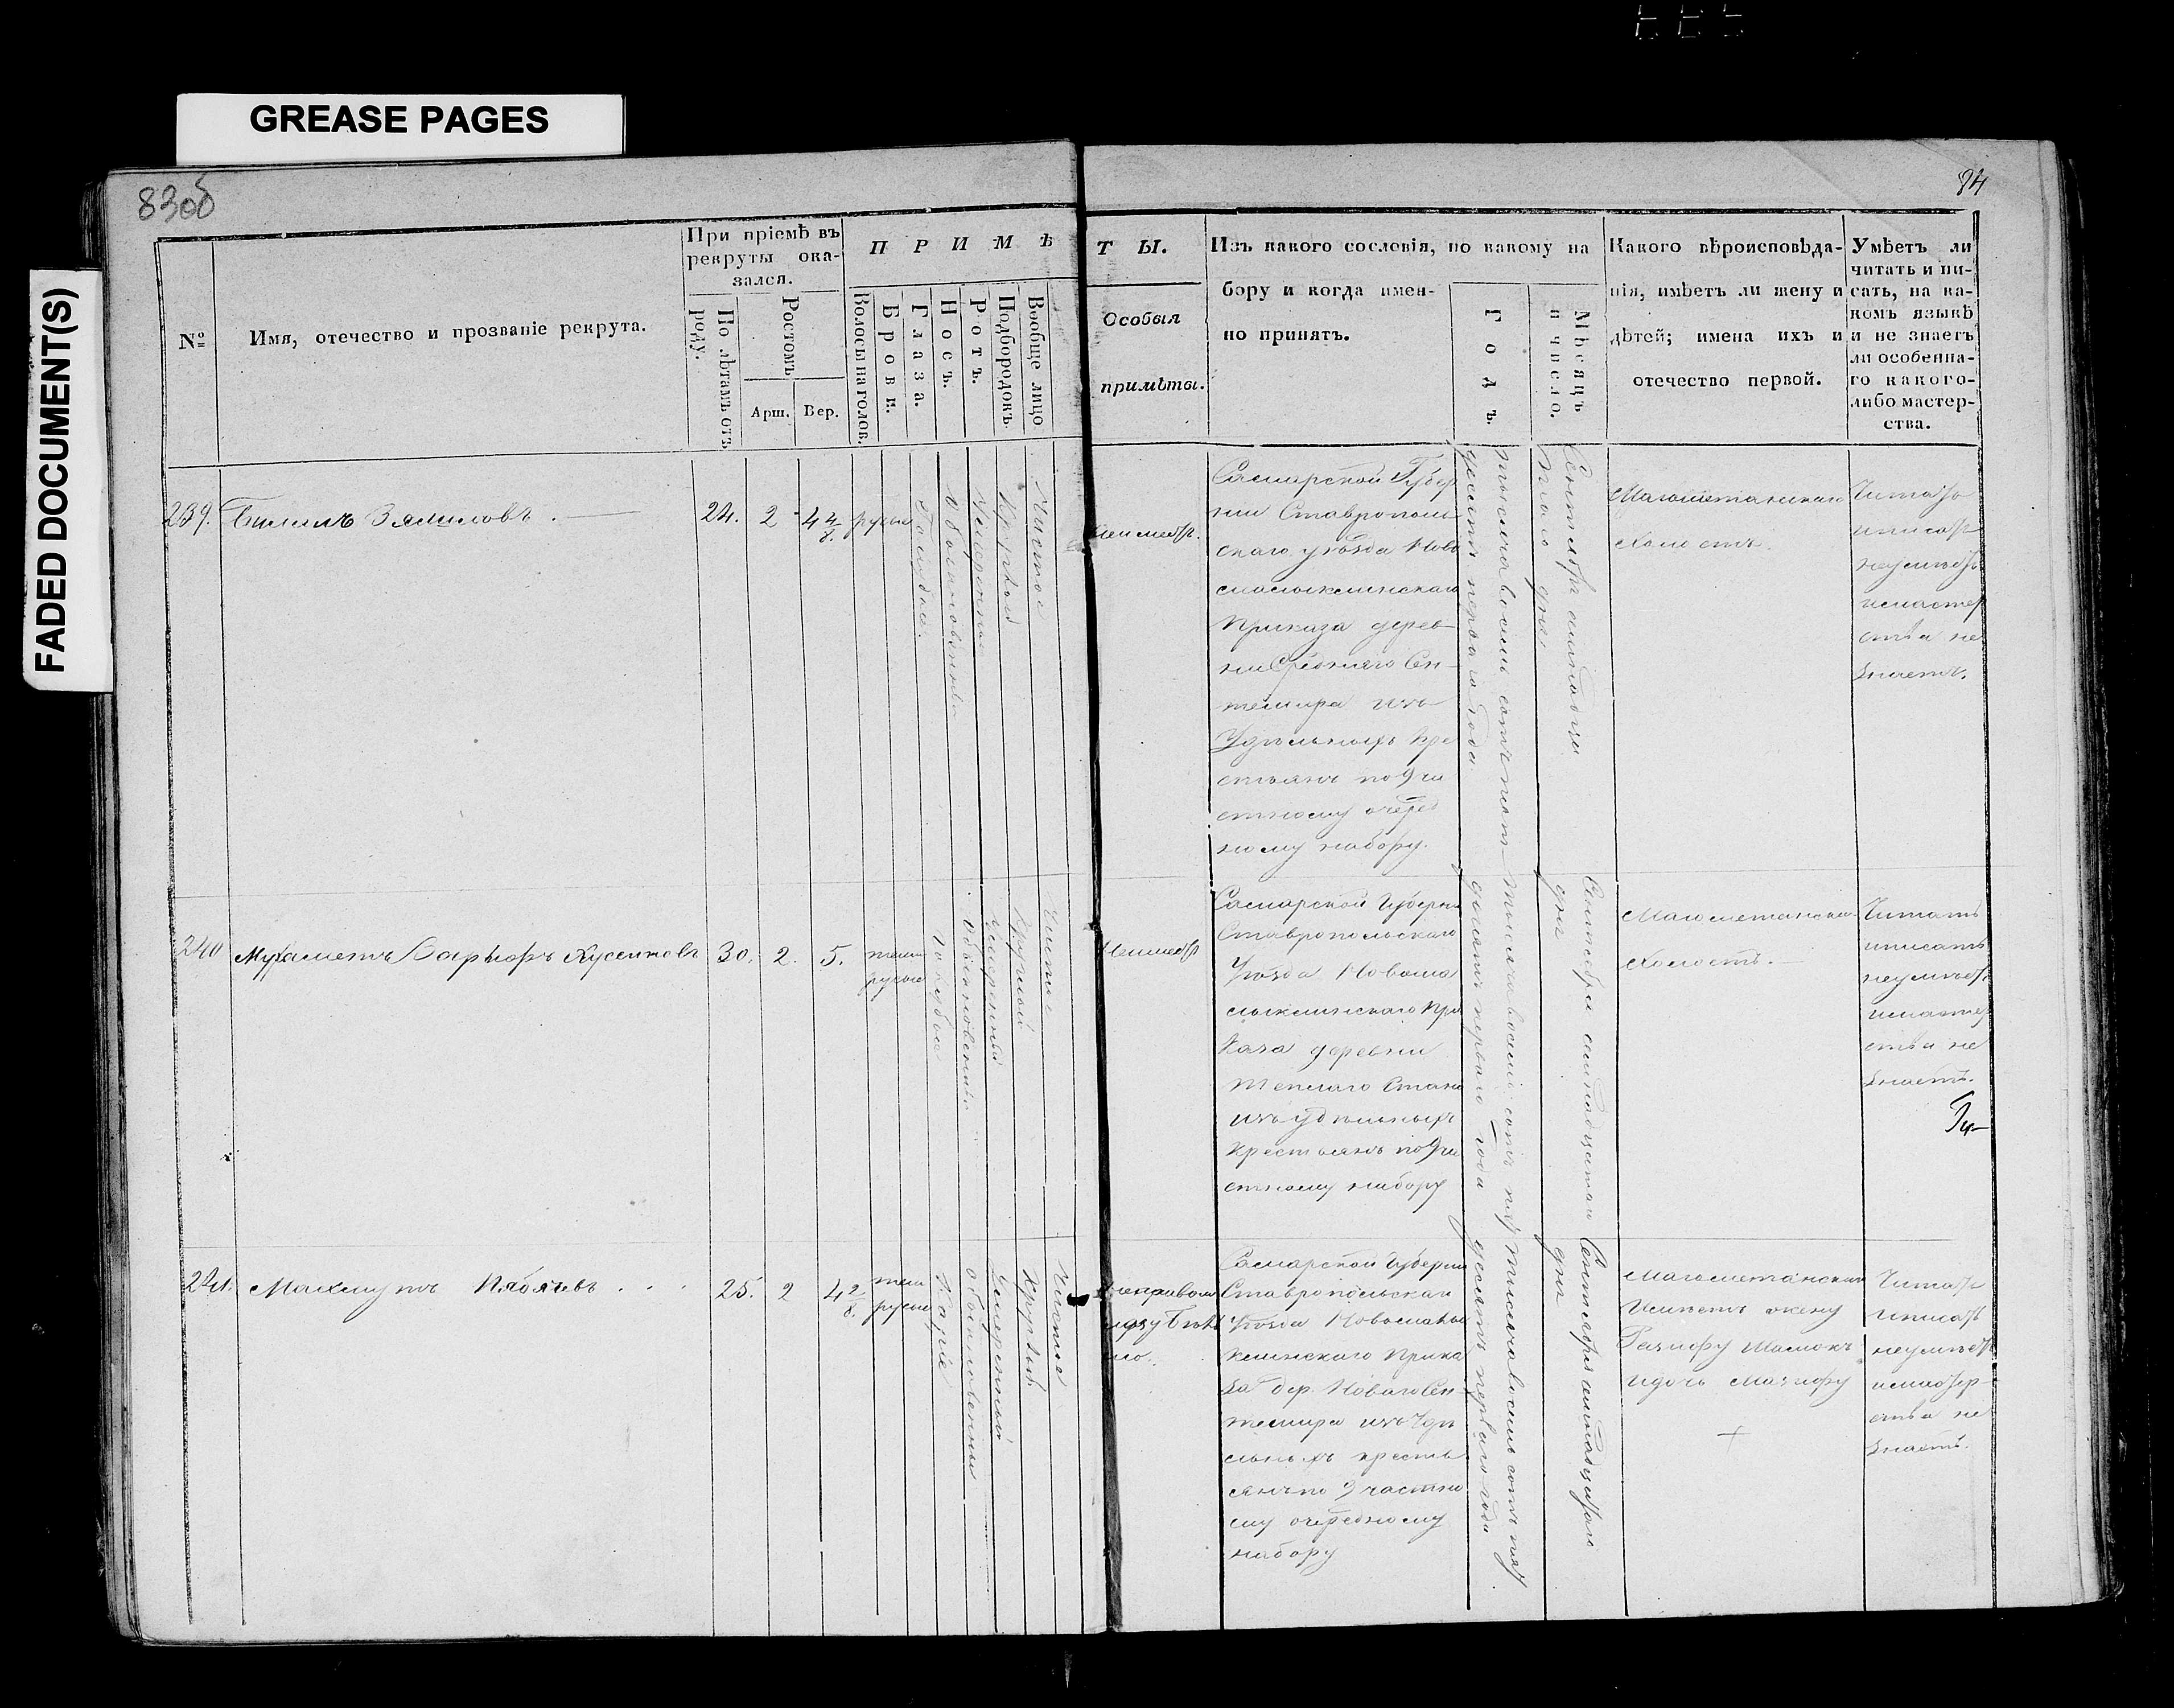 GREASE PAGES
FADED DOCUMENT(S)
83об
84
№
Имя, отечество и прозваніе рекрута.
При пріемѣ въ
рекруты ока-
зался.
По лѣтамъ отъ
роду.
Ростомъ
Арш.
Вер.
П Р И М Ѣ
Волосы на голов.
Брови.
Глаза.
Носъ.
Ротъ.
Подбородокъ.
Вообще лицо
Т Ы.
Особыя
примѣты.
Изъ какого сословія, по какому на
бору и когда имен-
но принятъ.
Годъ
Мѣсяцъ
и число.
Какого вѣроисповѣда-
нія, имѣетъ ли жену и
дѣтей; имена ихъ и
отечество первой.
Умѣетъ ли
читать и пи-
сать, на ка-
комъ языкѣ
и не знаетъ
ли особенна-
го какого-
либо мастер-
ства.
239.
Зялиловъ.
24.
2
4 4/8
русые
Голубые.
Обыкновенный
Умеренный
Круглый
Чистое
Самарской Губер
нии Ставрополь
скаго уѣзда Ново
малыклинскаго
Приказа дерев-
ни Средняго Сан-
темира изъ
Удѣльныхъ кре
стьянъ по 9 ча
стному очеред
ному набору.
тысяча восемь сотъ пять
десятъ перваго года
Сентября семнадца
таго дня
Магометанскаго
Холостъ.
Читать
и писать
неумѣетъ
и мастер
ства не
знаетъ.
240
Мухаметъ Хусеиновъ
30.
2.
5.
темно
русые
Голубые
Обыкновенный
Умеренный
Круглый
Чистое
Самарской Губерни
Ставропольскаго
Уѣзда Новома
лыклинскаго При
каза деревни
Теплаго Стана
изъ удѣльныхъ
крестьянъ по 9 ча
стному набору
тысяча восемь сотъ пять
десятъ перваго года
Сентября семнадцатаго
дня
Магометанска
Холостъ.
Читать
и писать
неумѣетъ
и мастер
ства не
знаетъ.
241.
Махмутъ
25.
2
4 2/8
темно
русые
Каріе
Обыкновенный
Умеренный
Круглый
Чистое
Самарской Губернии
Ставропольскаго
Уѣзда Новомалы
клинскаго Прика
за дер. Новаго Сан-
темира изъ Удѣ
льныхъ кресть
янъ по 9 частно
му очередному
набору
тысяча восемь сотъ пять
десятъ перваго года
Сентября семнадцатаго
дня
Магометанскаго
Имѣетъ жену
и дочь
Читать
и писать
неумѣетъ
и мастер-
ства не
знаетъ.